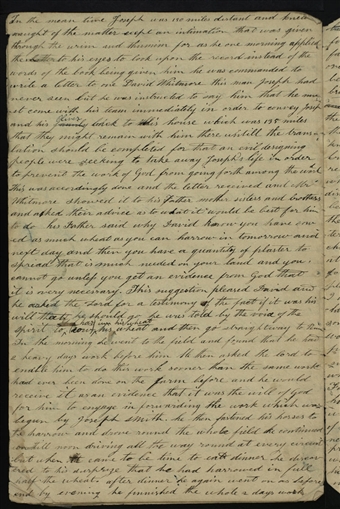 In the mean time Joseph was 150 miles distant and knew
naught of the matter exept an intimation that was given
through the urim and thumim for as he one morning applied
the to his eyes to look upon the record instead of the
words of the book being given him he was commanded to
write a letter to one David Whitmore this man Joseph had
never seen but he was instructed to say him that he must
come with his team immediately in order to convey Joseph
and his back to his house which was 135 miles
that they might remain with him there untill the trans-
lation should be completed for that an evil designing
people were seeking to take away Joseph's life in order
to prevent the work of God from going forth among the world
This was accordingly done and the letter received and Mr
Whitmore showed it to his Father mother sisters and brothers
and asked their advice as to what it would be best for him
to do his Father said why David know you have sowed
as much wheat as you can harrow in tomorrow and
next day and then you have a quantity of plaster to
spread that is much needed on your land and you
cannot go unless you get an evidence from God that
it is very necessary. This suggestion pleased David and
he asked the Lord for a testimony of the fact if it was his
will that he should go he was told by the voice of the
spirit to his wheat and then go straightway to
In the morning he went to the field and found that he had
a heavy days work before him He then asked the Lord to
enable him to do this work sooner than the same work
had ever been done on the farm before and he would
receive it as an evidence that it was the will of God
for him to engage in forwarding the work which was
begun by Joseph Smith. he then fastened his horses to
the harrow and drove round the whole field he continued
on till noon driving all the way round at every circuit
but when it came to be time to eat dinner he discov-
ered to his surprize that he had harrowed in full
half the wheat. after dinner he again went on as before
and by evening he finnished the whole 2 days work